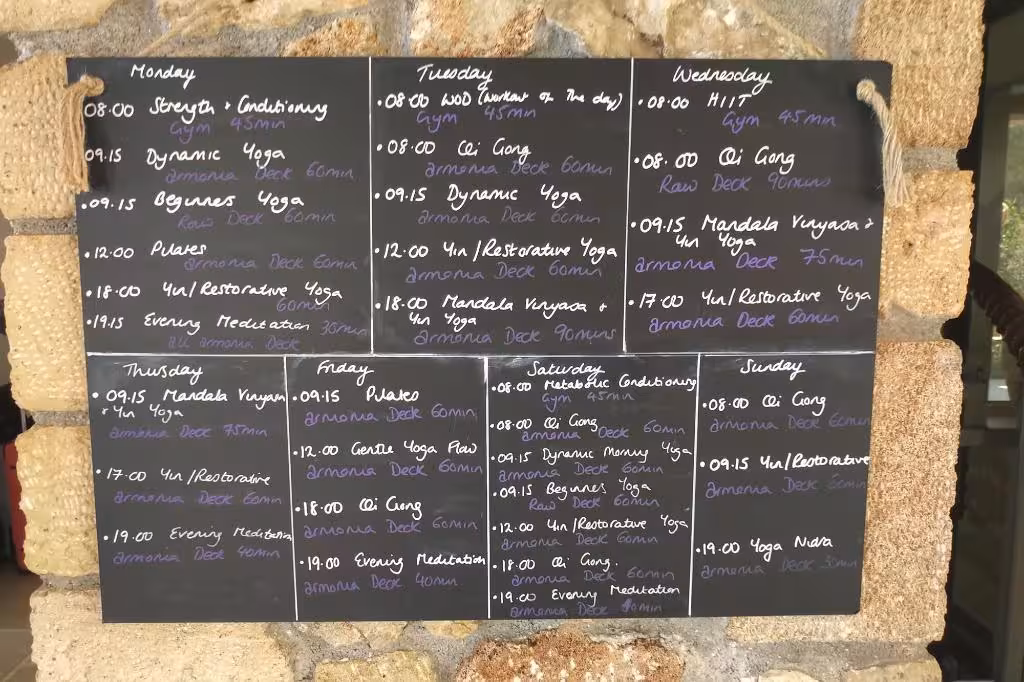 Monday
08.00 Strength + Conditioning
Gym 45min
09.15 Dynamic Yoga
armonia Deck 60min
• 09.15 Beginners Yoga
Raw Deck 60min
• 12.00 Pilates
armonia Deck 60min
• 18.00 Yin/Restorative Yoga
60min
• 19.15 Evening Meditation 30min
armonia Deck
Tuesday
• 08.00 WOD (Workout of The day)
Gym 45min
• 08.00 Qi Gong
armonia Deck 60min
• 09.15 Dynamic Yoga
armonia Deck 60min
• 12.00 Yin/Restorative Yoga
armonia Deck 60min
• 18.00 Mandala Vinyasa +
Yin Yoga
armonia Deck 90mins
Wednesday
• 08.00 HIIT
Gym 45min
• 08.00 Qi Gong
Raw Deck 90mins
• 09.15 Mandala Vinyasa +
Yin Yoga
armonia Deck 75min
• 17.00 Yin/Restorative Yoga
armonia Deck 60min
Thursday
• 09.15 Mandala Vinyasa
+ Yin Yoga
armonia Deck 75min
• 17.00 Yin/Restorative
armonia Deck 60min
• 19.00 Evening Meditation
armonia Deck 40min
Friday
• 09.15 Pilates
armonia Deck 60min
• 12.00 Gentle Yoga Flow
armonia Deck 60min
• 18.00 Qi Gong
armonia Deck 60min
• 19.00 Evening Meditation
armonia Deck 40min
Saturday
• 08.00 Metabolic Conditioning
Gym 45min
• 08.00 Qi Gong
armonia Deck 60min
• 09.15 Dynamic Morning Yoga
armonia Deck 60min
• 09.15 Beginners Yoga
Raw Deck 60min
• 12.00 Yin/Restorative Yoga
armonia Deck 60min
• 18.00 Qi Gong.
armonia Deck 60min
• 19.00 Evening Meditation
armonia Deck
Sunday
• 08.00 Qi Gong
armonia Deck 60min
• 09.15 Yin/Restorative
armonia Deck 60min
• 19.00 Yoga Nidra
armonia Deck 30min